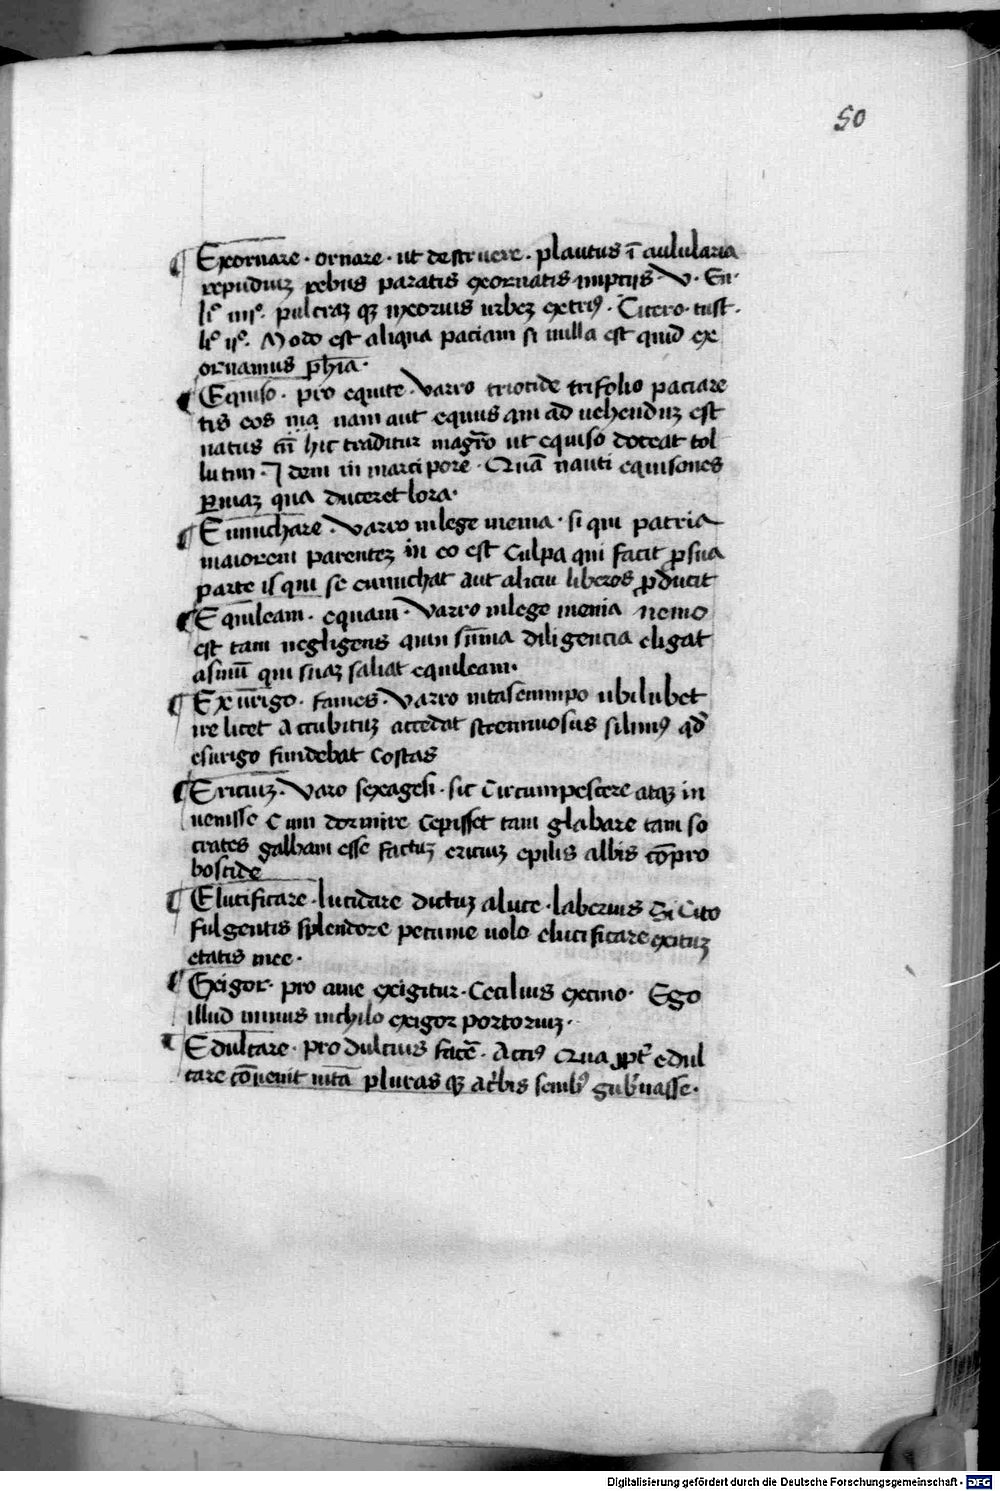 50
¶ Exornare · ornare · ut destruere · plautus ī aulularia
repudiuꝫ rebus paratis exornatis nuptijs · V · En ·
li° iiii°. pulcraꝫ qꝫ uxorius urbeꝫ extruꝰ · Cicero · tusc ·
li° ij°. Modo est aliqua paciam si nulla est quid ex
ornamus ph̄ia ·
¶ Equiso · pro equite · Varro triotide trifolio paciare
tis eos nam aut equus qui ad uehenduꝫ est
natus tn̄ hic traditur magr̄o ut equiso doceat tol
lutim · Idem in marcipore · Quā nauti equisones
ꝑ uiaꝫ qua duceret lora ·
¶ Eunuchare · Varro in lege menia · si qui patria
maiorem parenteꝫ in eo est culpa qui facit ꝓ sua
parte is qui se eunuchat aut aliciu liberos ꝓducit
¶ Equuleam · equam · Varro in lege menia nemo
est tam negligens quin sūma diligencia eligat
asinū qui suaꝫ saliat equuleam ·
¶ Exurigo · fames · Varro ubilubet
ire licet accubituꝫ accedat
esurigo fundebat costas
¶ Ericiuꝫ · Varo sexagesi · sic circumpescere atqꝫ in
uenisse cum dormire cepisset tam glabare tam so
crates galbam esse factuꝫ ericiuꝫ epilis albis cō pro
boscide
¶ Elucificare · lucidare dictuꝫ a luce · laberius Si cito
fulgentis splendore pecunie uolo elucificare exituꝫ
etatis mee ·
¶ Exigor · pro aiue exigitur · Cecilius · Ego
illud minus nichilo exigor portoriuꝫ ·
¶ Edulcare · pro dulcius facē · Acciꝰ Qua ꝓpt̄ edul
care cōuenit uitā pluras qꝫ gub̄nasse ·
Digitalisierung gefördert durch die Deutsche Forschungsgemeinschaft · DFG